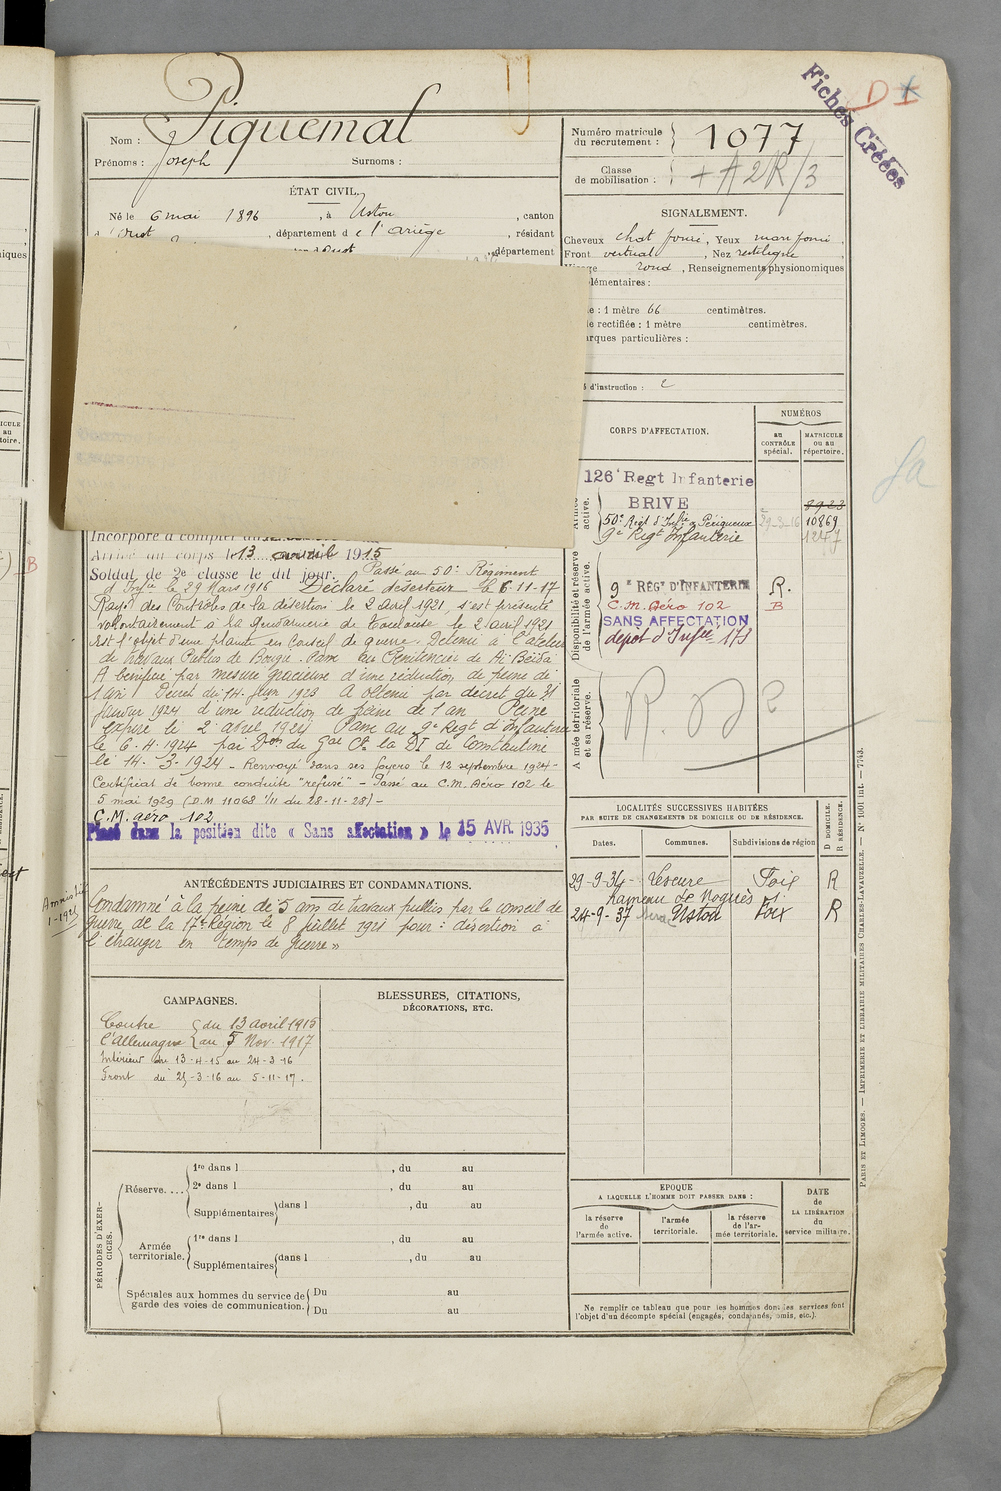 Fiches Créées
D
Nom : Piquemal
Prénoms : Joseph Surnoms :
Numéro matricule du recrutement : 1077
Classe de mobilisation : + A 2R/3
ÉTAT CIVIL.
Né le 6 mai 1896, à Ustou, canton
d'Oust, département de l'Ariège, résidant
département
SIGNALEMENT.
Cheveux chat foncé, Yeux mar foncé,
Front vertical, Nez rectiligne,
rond, Renseignements physionomiques
lémentaires :
e : 1 mètre 66 centimètres.
le rectifiée : 1 mètre centimètres.
arques particulières :
d'instruction : 2
CORPS D'AFFECTATION.
NUMÉROS
au CONTRÔLE spécial.
MATRICULE ou au répertoire.
126e Regt Infanterie
BRIVE 8923
50e Regt d'Infie à Périgueux 29-3-16 10869
9e Regt Infanterie
active.
Disponibilité et réserve de l'armée active.
9e RÉGT D'INFANTERIE R.
C.M. Aéro 102 B
SANS AFFECTATION
dépot d'Infie 173
Armée territoriale et sa réserve.
Incorporé à compter du
Arrivé au corps le 13 avril 1915
Soldat de 2e classe le dit jour. Passé au 50e Régiment
d'Infie le 29 Mars 1916 Déclaré déserteur le 6-11-17
Rayé des Contrôles de la désertion le 2 avril 1921, s'est présenté
volontairement à la gendarmerie de Toulouse le 2 avril 1921
Est l'objet d'une plainte en Conseil de guerre. Détenu à l'atelier
de Travaux Publics de Bougie. Passé au Pénitencier de Aï Beïda
A bénéficié par mesure gracieuse d'une réduction de peine de
1 an Décret du 14 Juin 1923 A obtenu par décret du 31
Janvier 1924 d'une réduction de peine de 1 an Peine
expire le 2 avril 1924 Passé au 9e Regt d'Infanterie
le 6.4.1924 par Don du Gal Ct la DI de Constantine
le 14.3.1924 - Renvoyé dans ses foyers le 12 septembre 1924 -
Certificat de bonne conduite "refusé" - Passé au C.M. Aéro 102 le
5 mai 1929 (D.M 11068 1/11 du 28-11-28) -
C.M. aéro 102
Placé dans la position dite « Sans affectation » le 15 AVR. 1935
LOCALITÉS SUCCESSIVES HABITÉES
PAR SUITE DE CHANGEMENTS DE DOMICILE OU DE RÉSIDENCE.
D DOMICILE. R RÉSIDENCE.
Dates. Communes. Subdivisions de région
29-9-34 - Lescure Foix R
hameau de Noguès
24-9-37 Ustou Foix R
ANTÉCÉDENTS JUDICIAIRES ET CONDAMNATIONS.
Condamné à la peine de 5 ans de travaux publics par le conseil de
guerre de la 17e Région le 8 juillet 1921 pour : désertion à
l'étranger en temps de guerre »
CAMPAGNES.
Contre l'Allemagne du 13 avril 1915
au 5 Nov. 1917
Intérieur du 13-4-15 au 24-3-16
Front du 25-3-16 au 5-11-17.
BLESSURES, CITATIONS,
DÉCORATIONS, ETC.
PÉRIODES D'EXERCICES.
Réserve....
1re dans l , du au
2e dans l , du au
Supplémentaires dans l , du au
Armée territoriale.
1re dans l , du au
Supplémentaires dans l , du au
Spéciales aux hommes du service de garde des voies de communication.
Du au
Du au
ÉPOQUE
A LAQUELLE L'HOMME DOIT PASSER DANS :
la réserve de l'armée active.
l'armée territoriale.
la réserve de l'armée territoriale.
DATE DE LA LIBÉRATION du service militaire.
Ne remplir ce tableau que pour les hommes dont les services font
l'objet d'un décompte spécial (engagés, condamnés, omis, etc.).
PARIS ET LIMOGES. — IMPRIMERIE ET LIBRAIRIE MILITAIRES CHARLES-LAVAUZELLE. — N° 1001 int. — 7743.